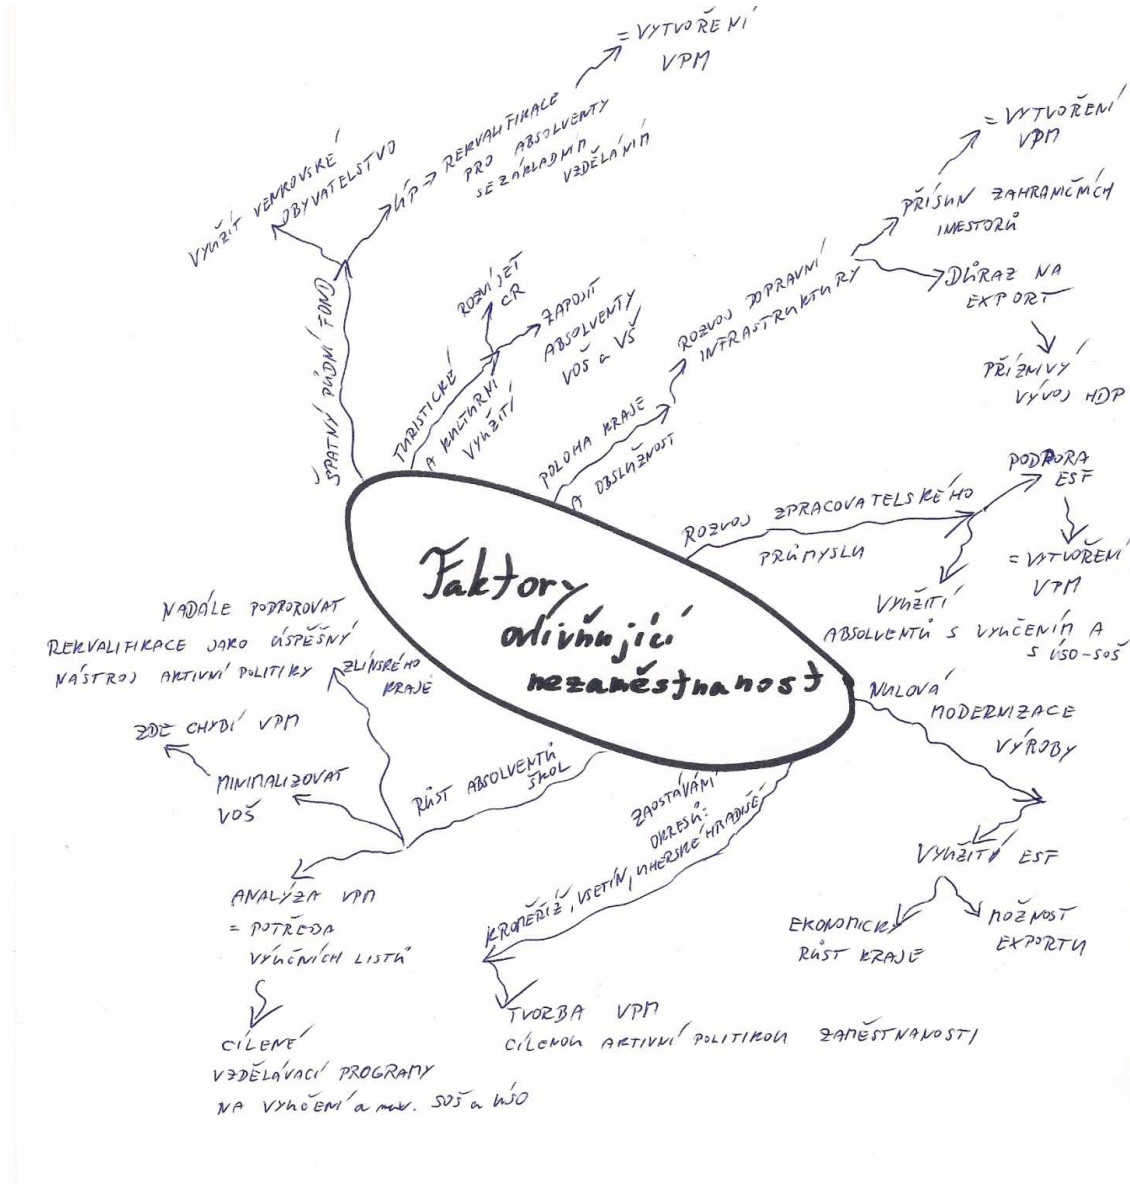 Faktory
ovlivňující
nezaměstnanost
ŠPATNÝ PŮDNÍ FOND
VYUŽÍT VENKOVSKÉ
OBYVATELSTVO
ÚP → REKVALIFIKACE
PRO ABSOLVENTY
SE ZÁKLADNÍM
VZDĚLÁNÍM
= VYTVOŘENÍ
VPM
TURISTICKÉ
A KULTURNÍ
VYUŽITÍ
ROZVÍJET
CR
ZAPOJIT
ABSOLVENTY
VOŠ a VŠ
POLOHA KRAJE
A OBSLUŽNOST
ROZVOJ DOPRAVNÍ
INFRASTRUKTURY
PŘÍSUN ZAHRANIČNÍCH
INESTORŮ
= VYTVOŘENÍ
VPM
DŮRAZ NA
EXPORT
PŘÍZNIVÝ
VÝVOJ HDP
ROZVOJ ZPRACOVATELSKÉHO
PRŮMYSLU
PODPORA
ESF
= VYTVOŘENÍ
VPM
VYUŽITÍ
ABSOLVENTŮ S VYUČENÍM A
S ÚSO-SOŠ
NULOVÁ
MODERNIZACE
VÝROBY
VYUŽITÍ ESF
EKONOMICKÝ
RŮST KRAJE
MOŽNOST
EXPORTU
ZAOSTÁVÁNÍ
OKRESŮ:
KROMĚŘÍŽ, VSETÍN, UHERSKÉ HRADIŠTĚ
TVORBA VPM
CÍLENOU AKTIVNÍ POLITIKOU ZAMĚSTNANOSTI
RŮST ABSOLVENTŮ
ŠKOL
NADÁLE PODPOROVAT
REKVALIFIKACE JAKO ÚSPĚŠNÝ
NÁSTROJ AKTIVNÍ POLITIKY ZLÍNSKÉHO
KRAJE
MINIMALIZOVAT
VOŠ
ZDE CHYBÍ VPM
ANALÝZA VPM
= POTŘEBA
VÝUČNÍCH LISTŮ
CÍLENÉ
VZDĚLÁVACÍ PROGRAMY
NA VYUČENÍ a SOŠ a ÚSO